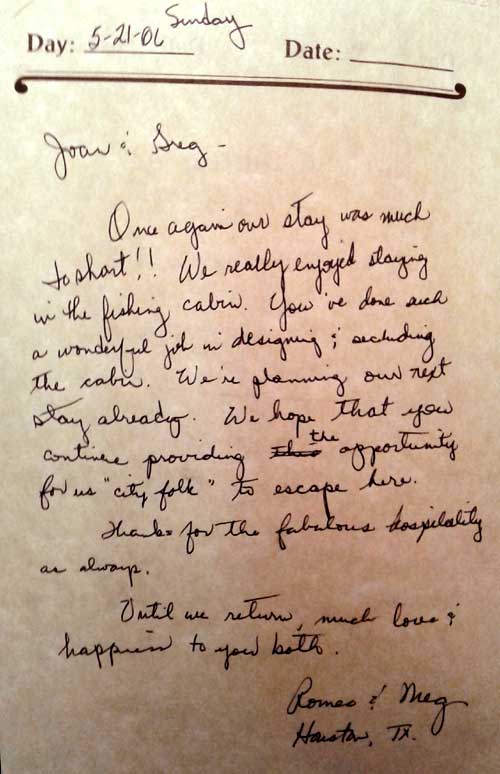 Sunday
Day: 5-21-06 Date:
Joan & Greg -
Once again our stay was much
to short!! We really enjoyed staying
in the fishing cabin. You've done such
a wonderful job in designing & secluding
the cabin. We're planning our next
stay already. We hope that you
continue providing this the opportunity
for us "city folk" to escape here.
Thanks for the fabulous hospitality
as always.
Until we return, much love &
happiness to you both.
Romeo & Meg
Houston, TX.